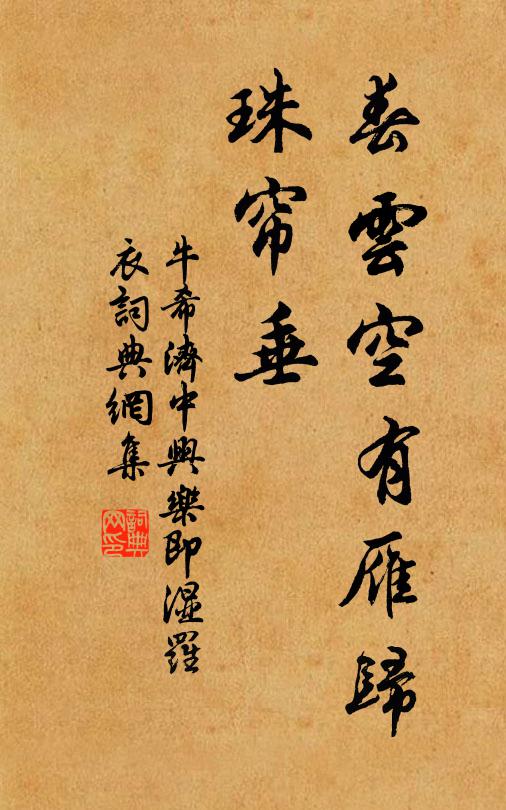 春雲空有雁歸
珠帘垂
牛希濟中興樂即濕羅
衣詞典網集
詞典
网印